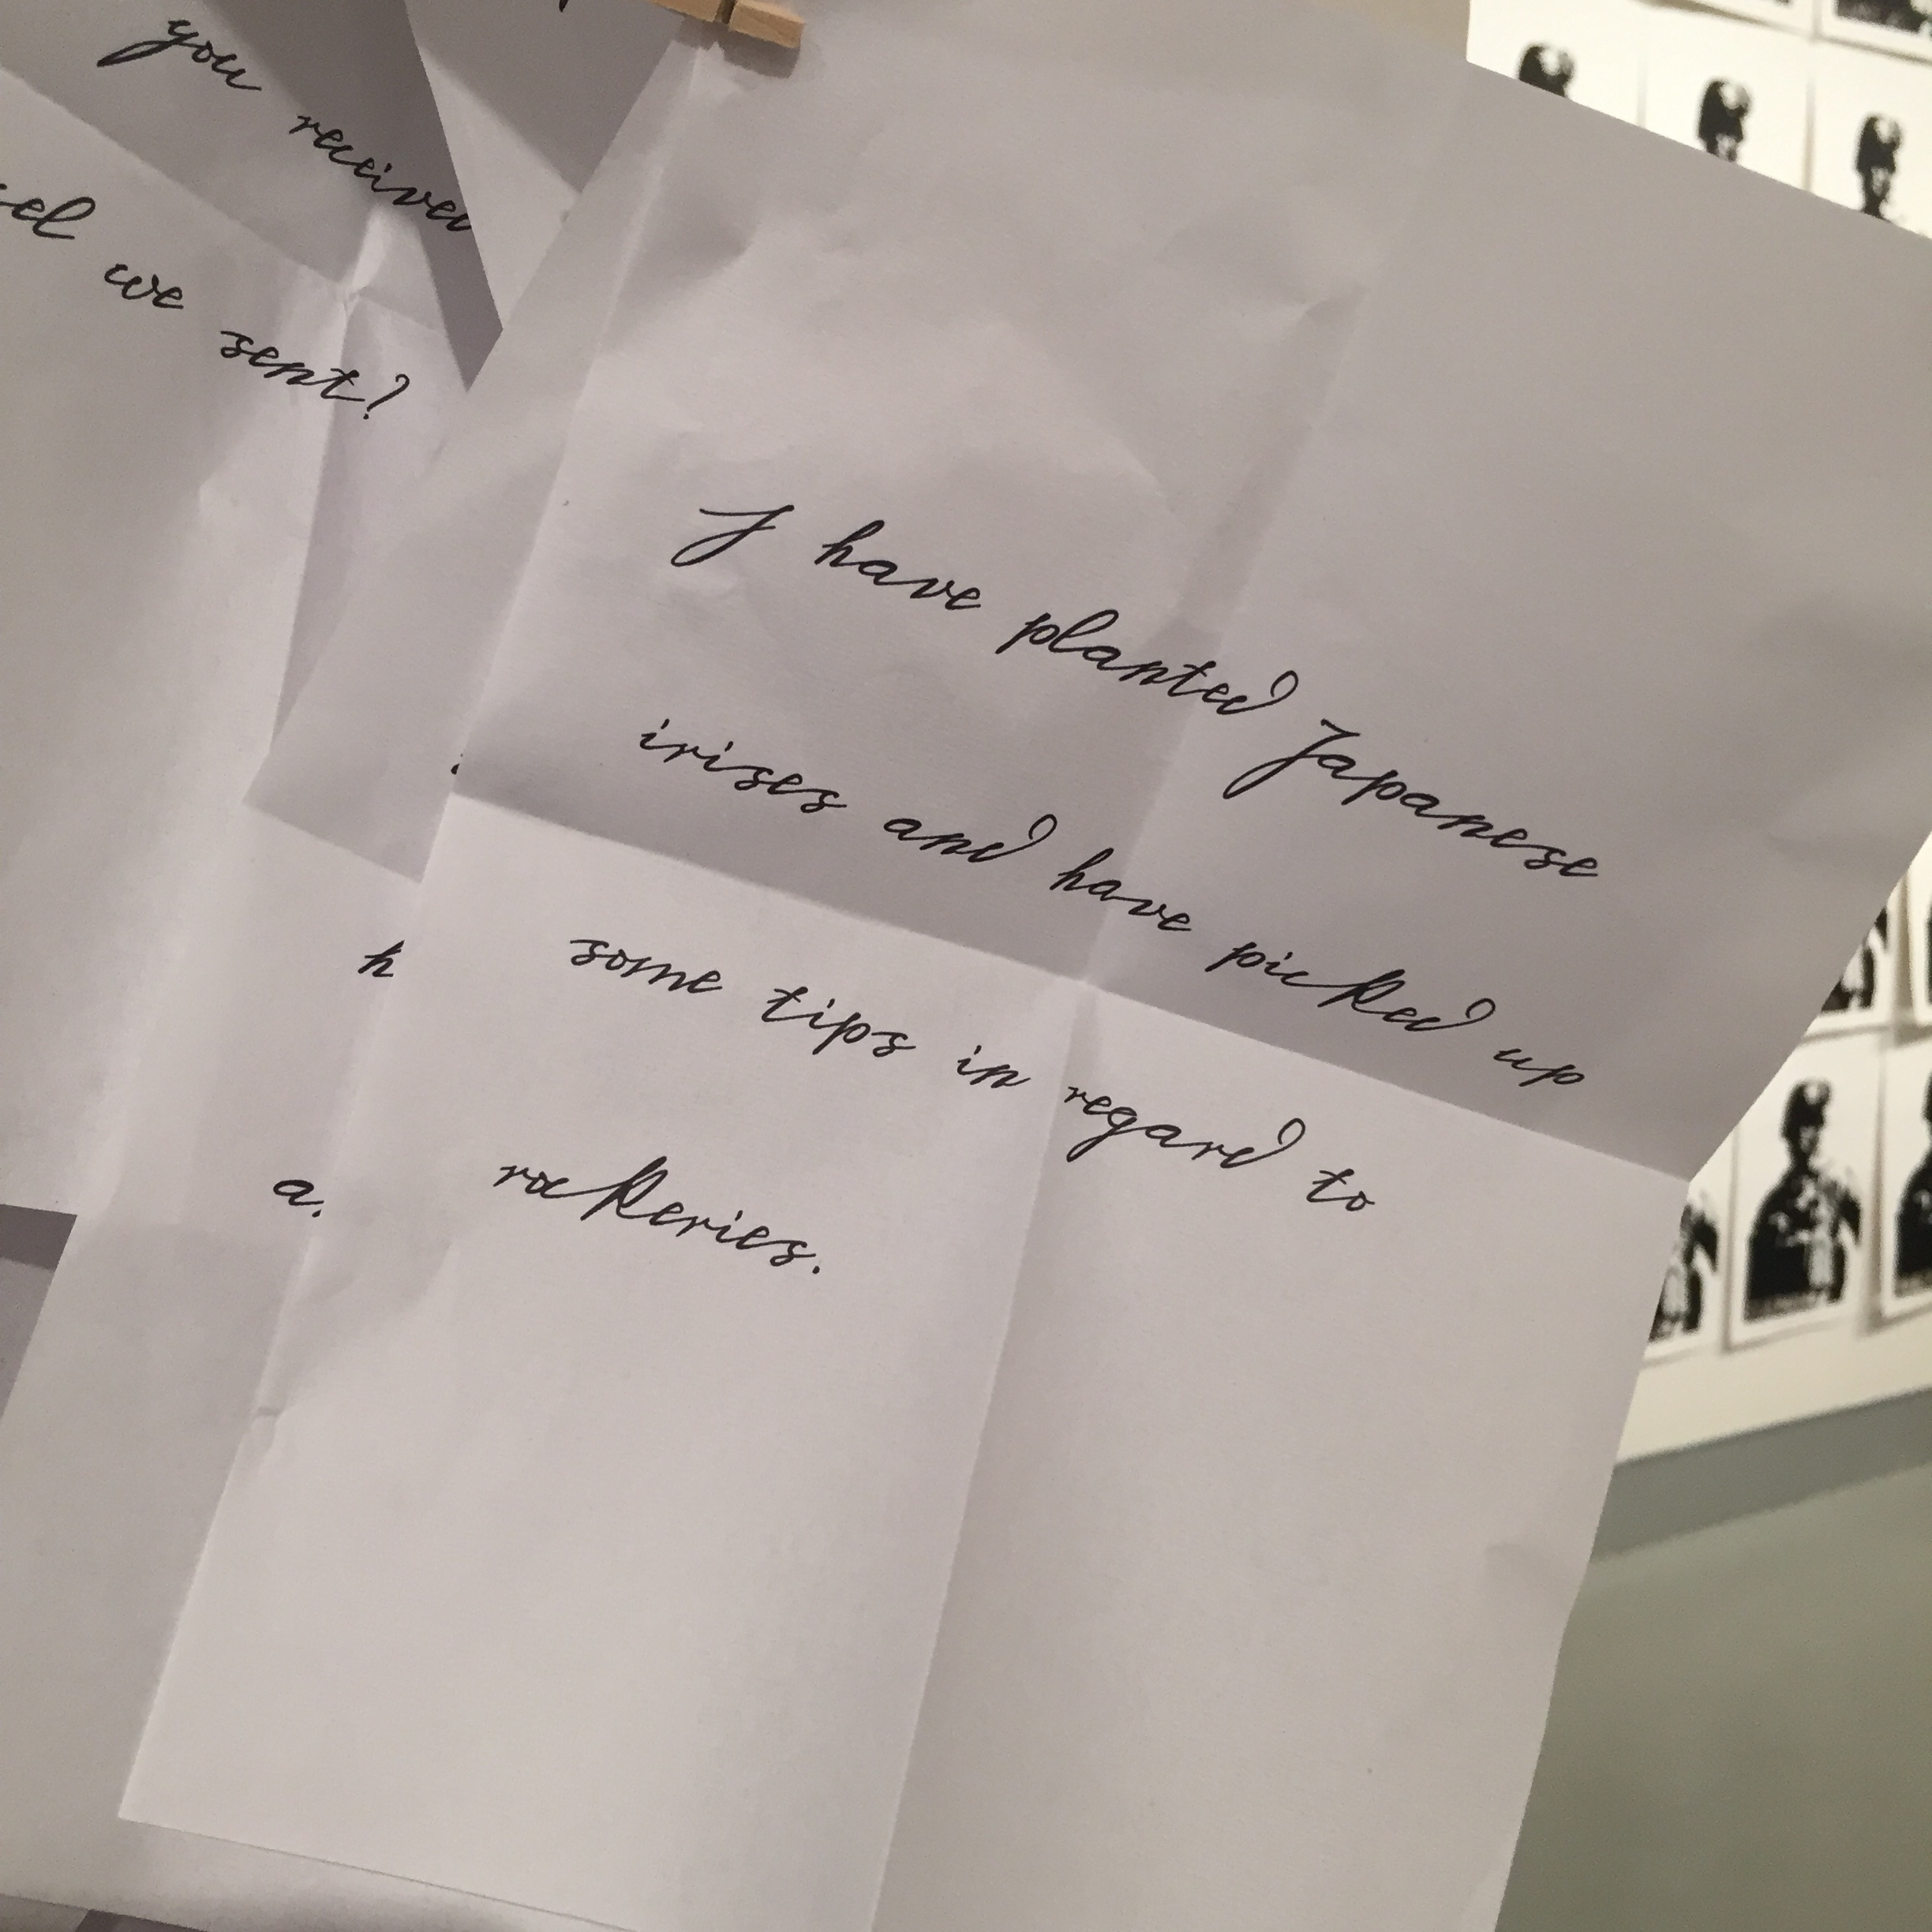 you received
we sent?
I have planted Japanese
irises and have picked up
some tips in regard to
rockeries.
h
a.